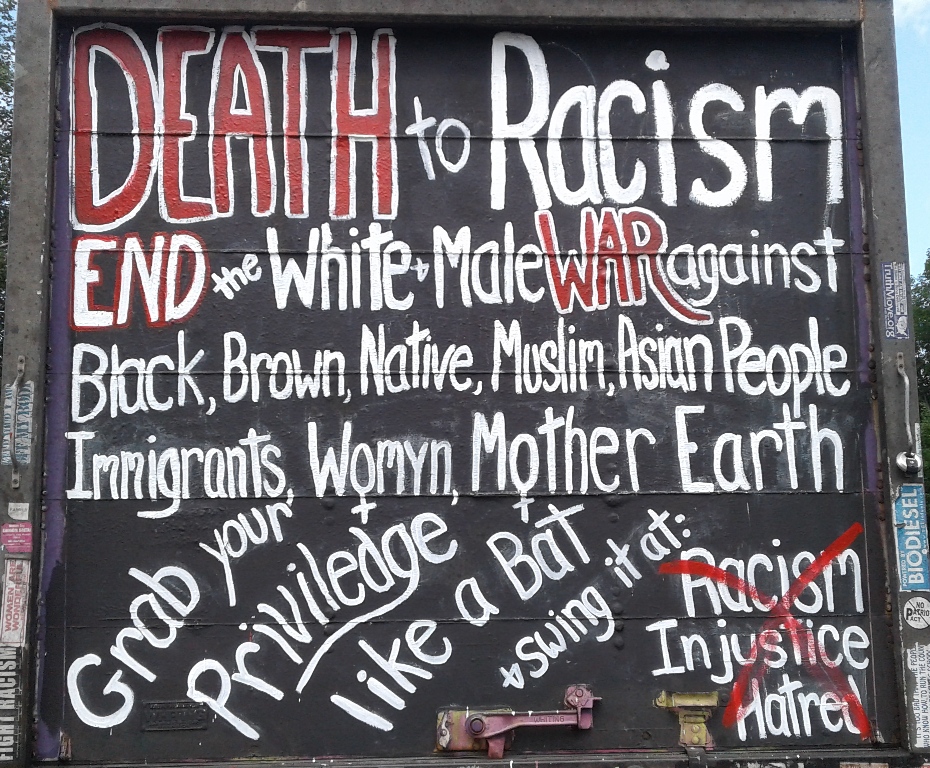 DEATH to Racism
END the White + Male WAR against
Black, Brown, Native, Muslim, Asian People
Immigrants, Womyn, Mother Earth
Grab your
Priviledge
like a Bat
+ swing it at:
Racism
Injustice
Hatred
TruthMove.org
POWERED BY
BIODIESEL
NO
PATRIOT
ACT
WOMEN ARE
FIGHT RACISM
WHITING